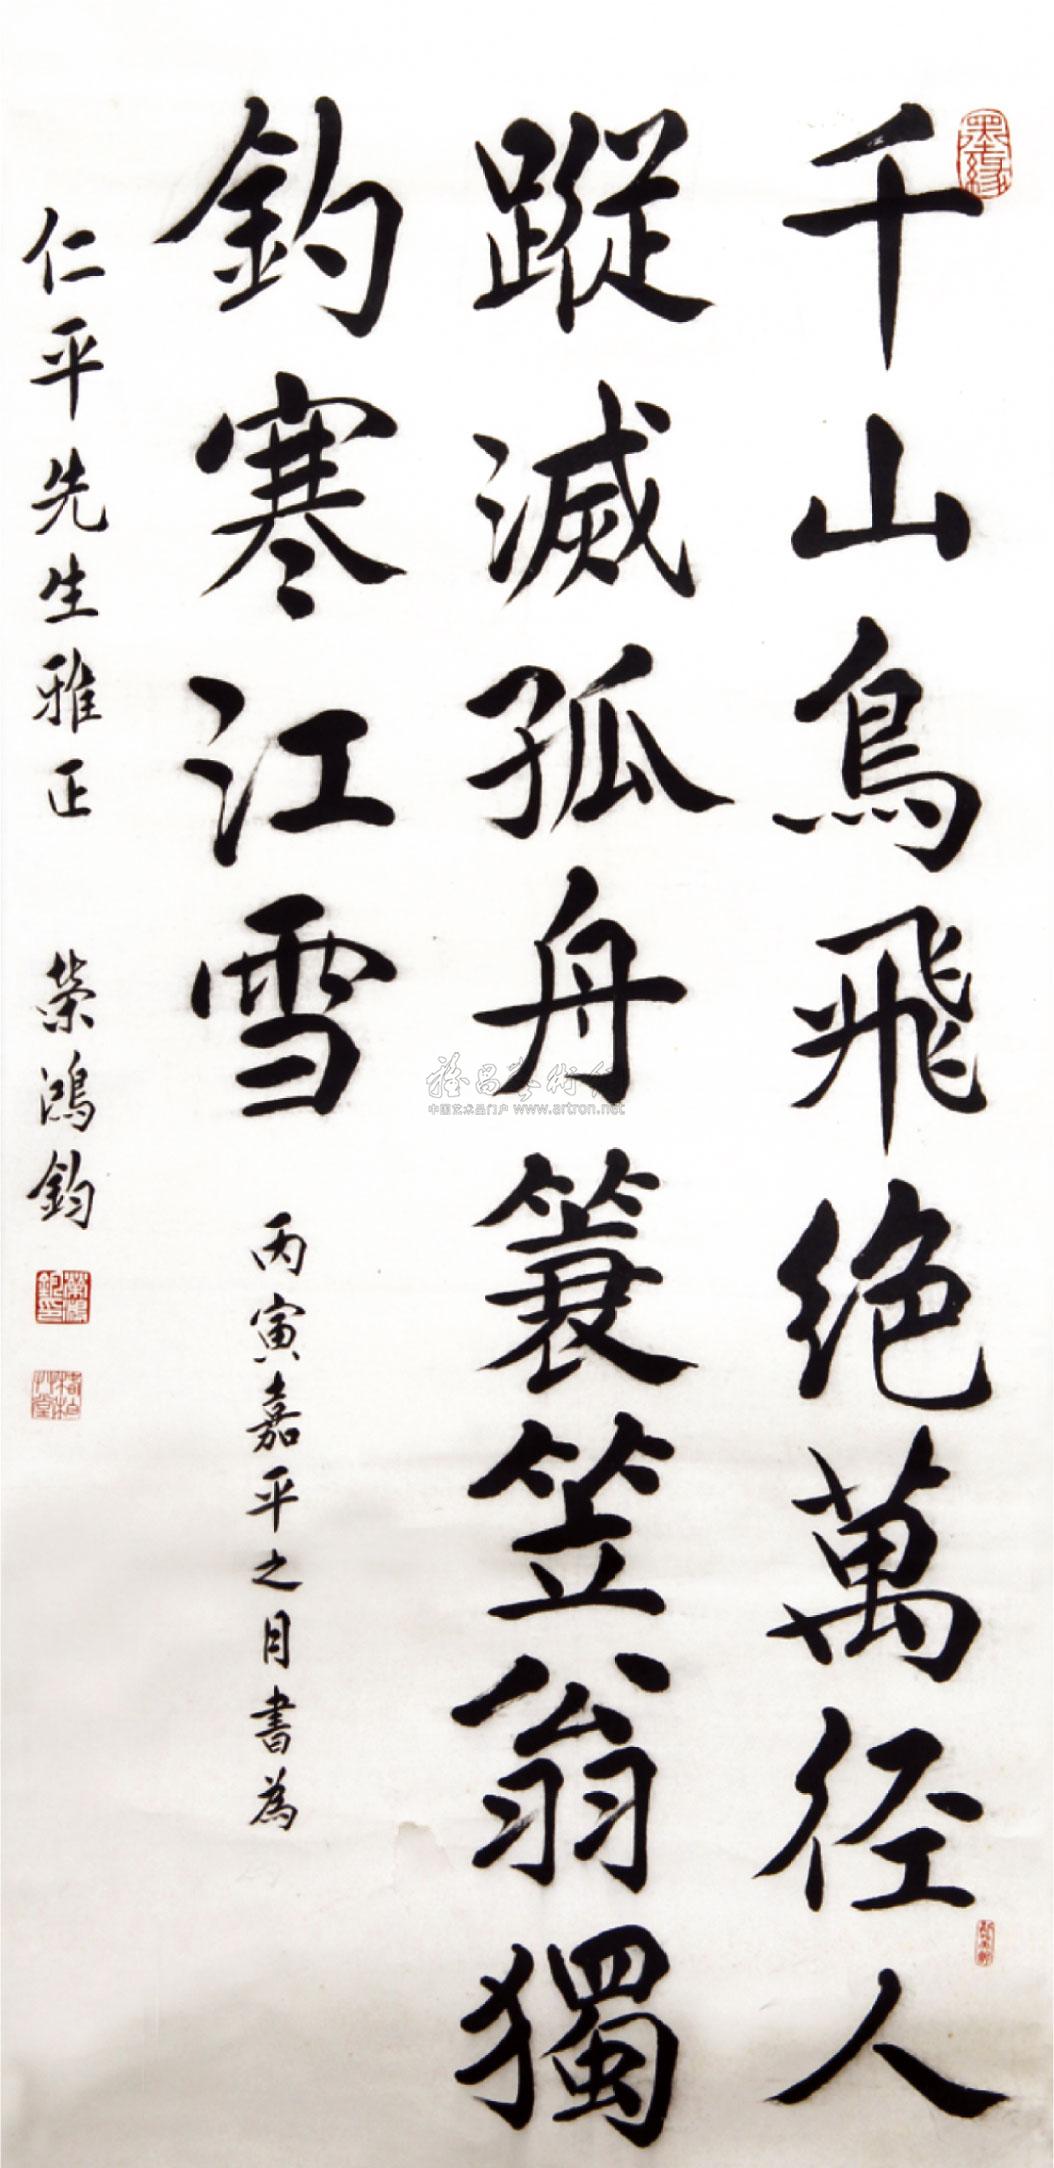 千山鳥飛绝萬径人
蹤滅孤舟簑笠翁獨
釣寒江雪
丙寅嘉平之月書為
仁平先生雅正
榮鴻鈞
墨缘
中国艺术品门户 www.artron.net